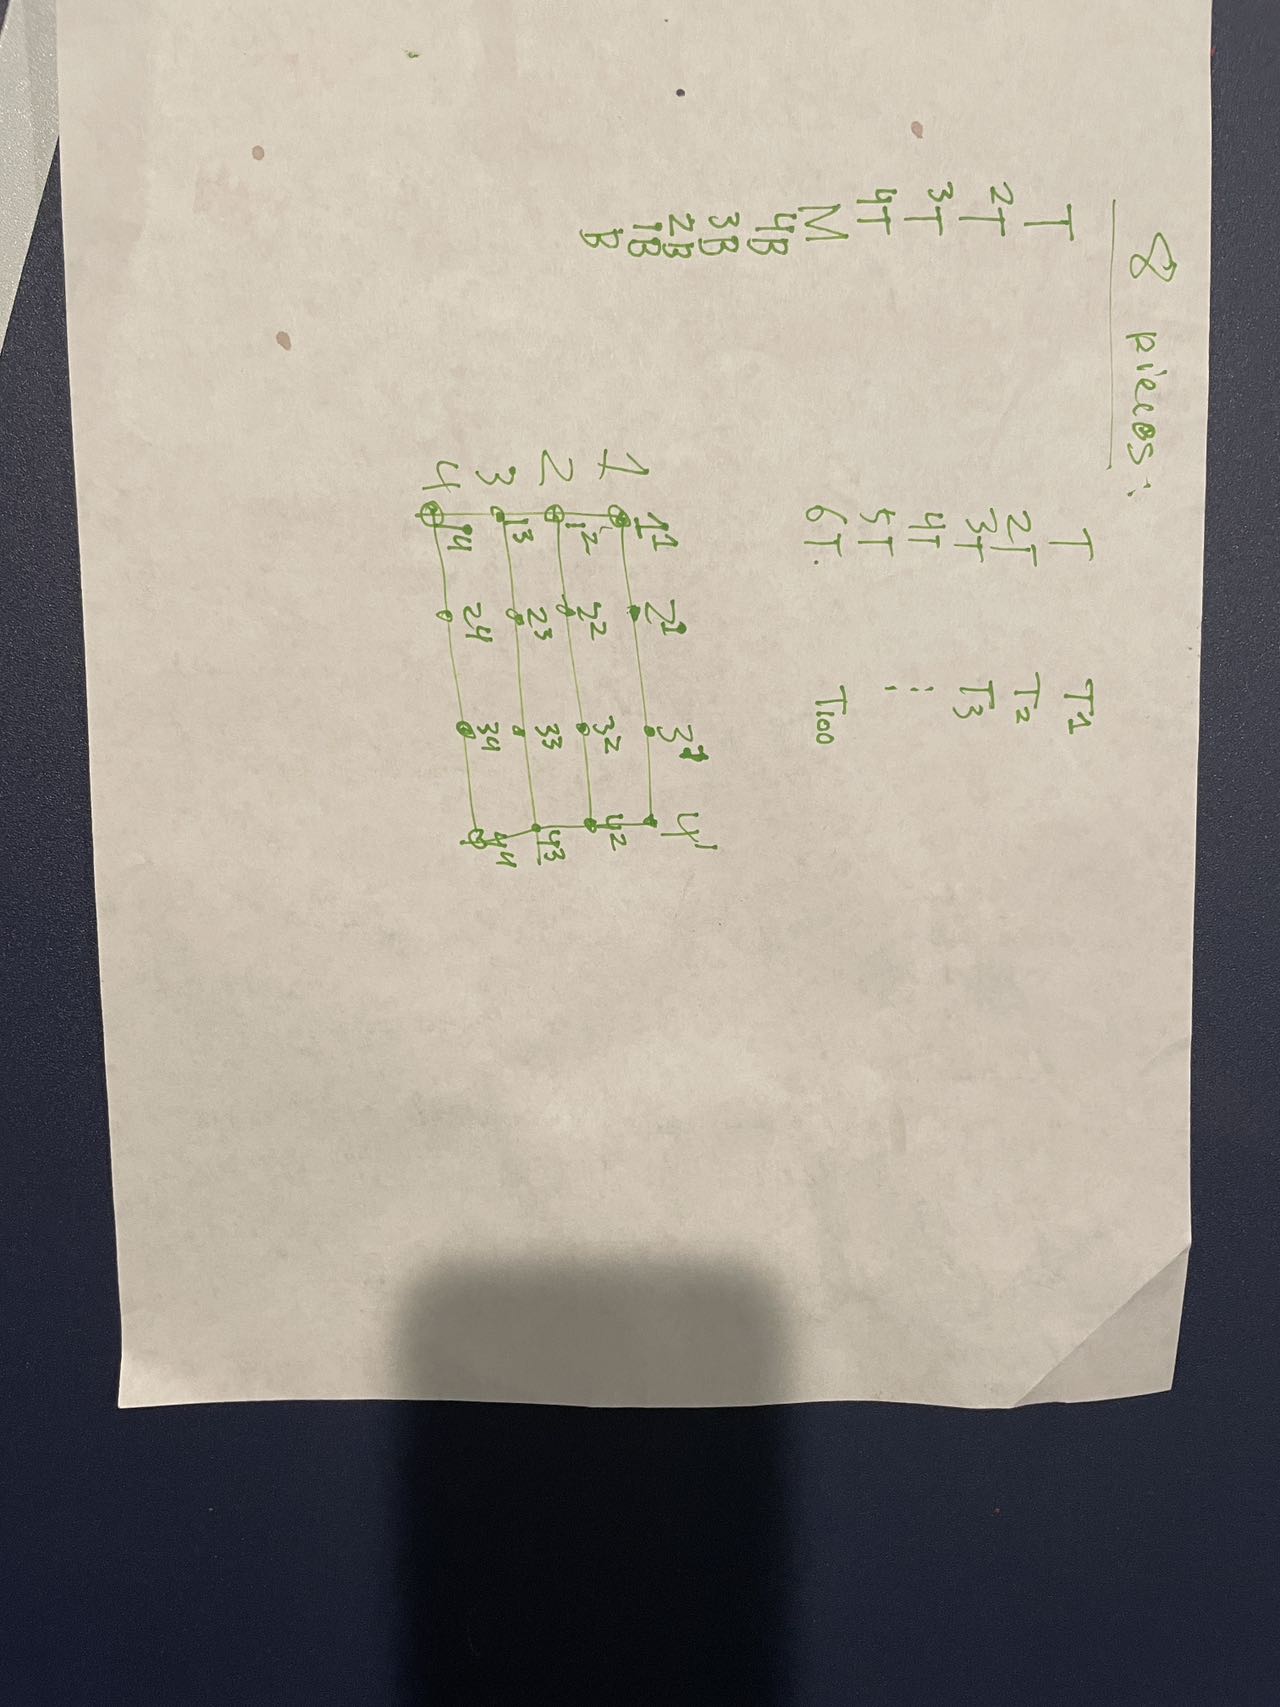 8 pieces:
T
2T
3T
4T
M
4B
3B
2B
1B
B
T
2T
3T
4T
5T
6T.
T1
T2
T3
⋮
T100
1 11 21 31 41
2 12 22 32 42
3 13 23 33 43
4 14 24 34 44